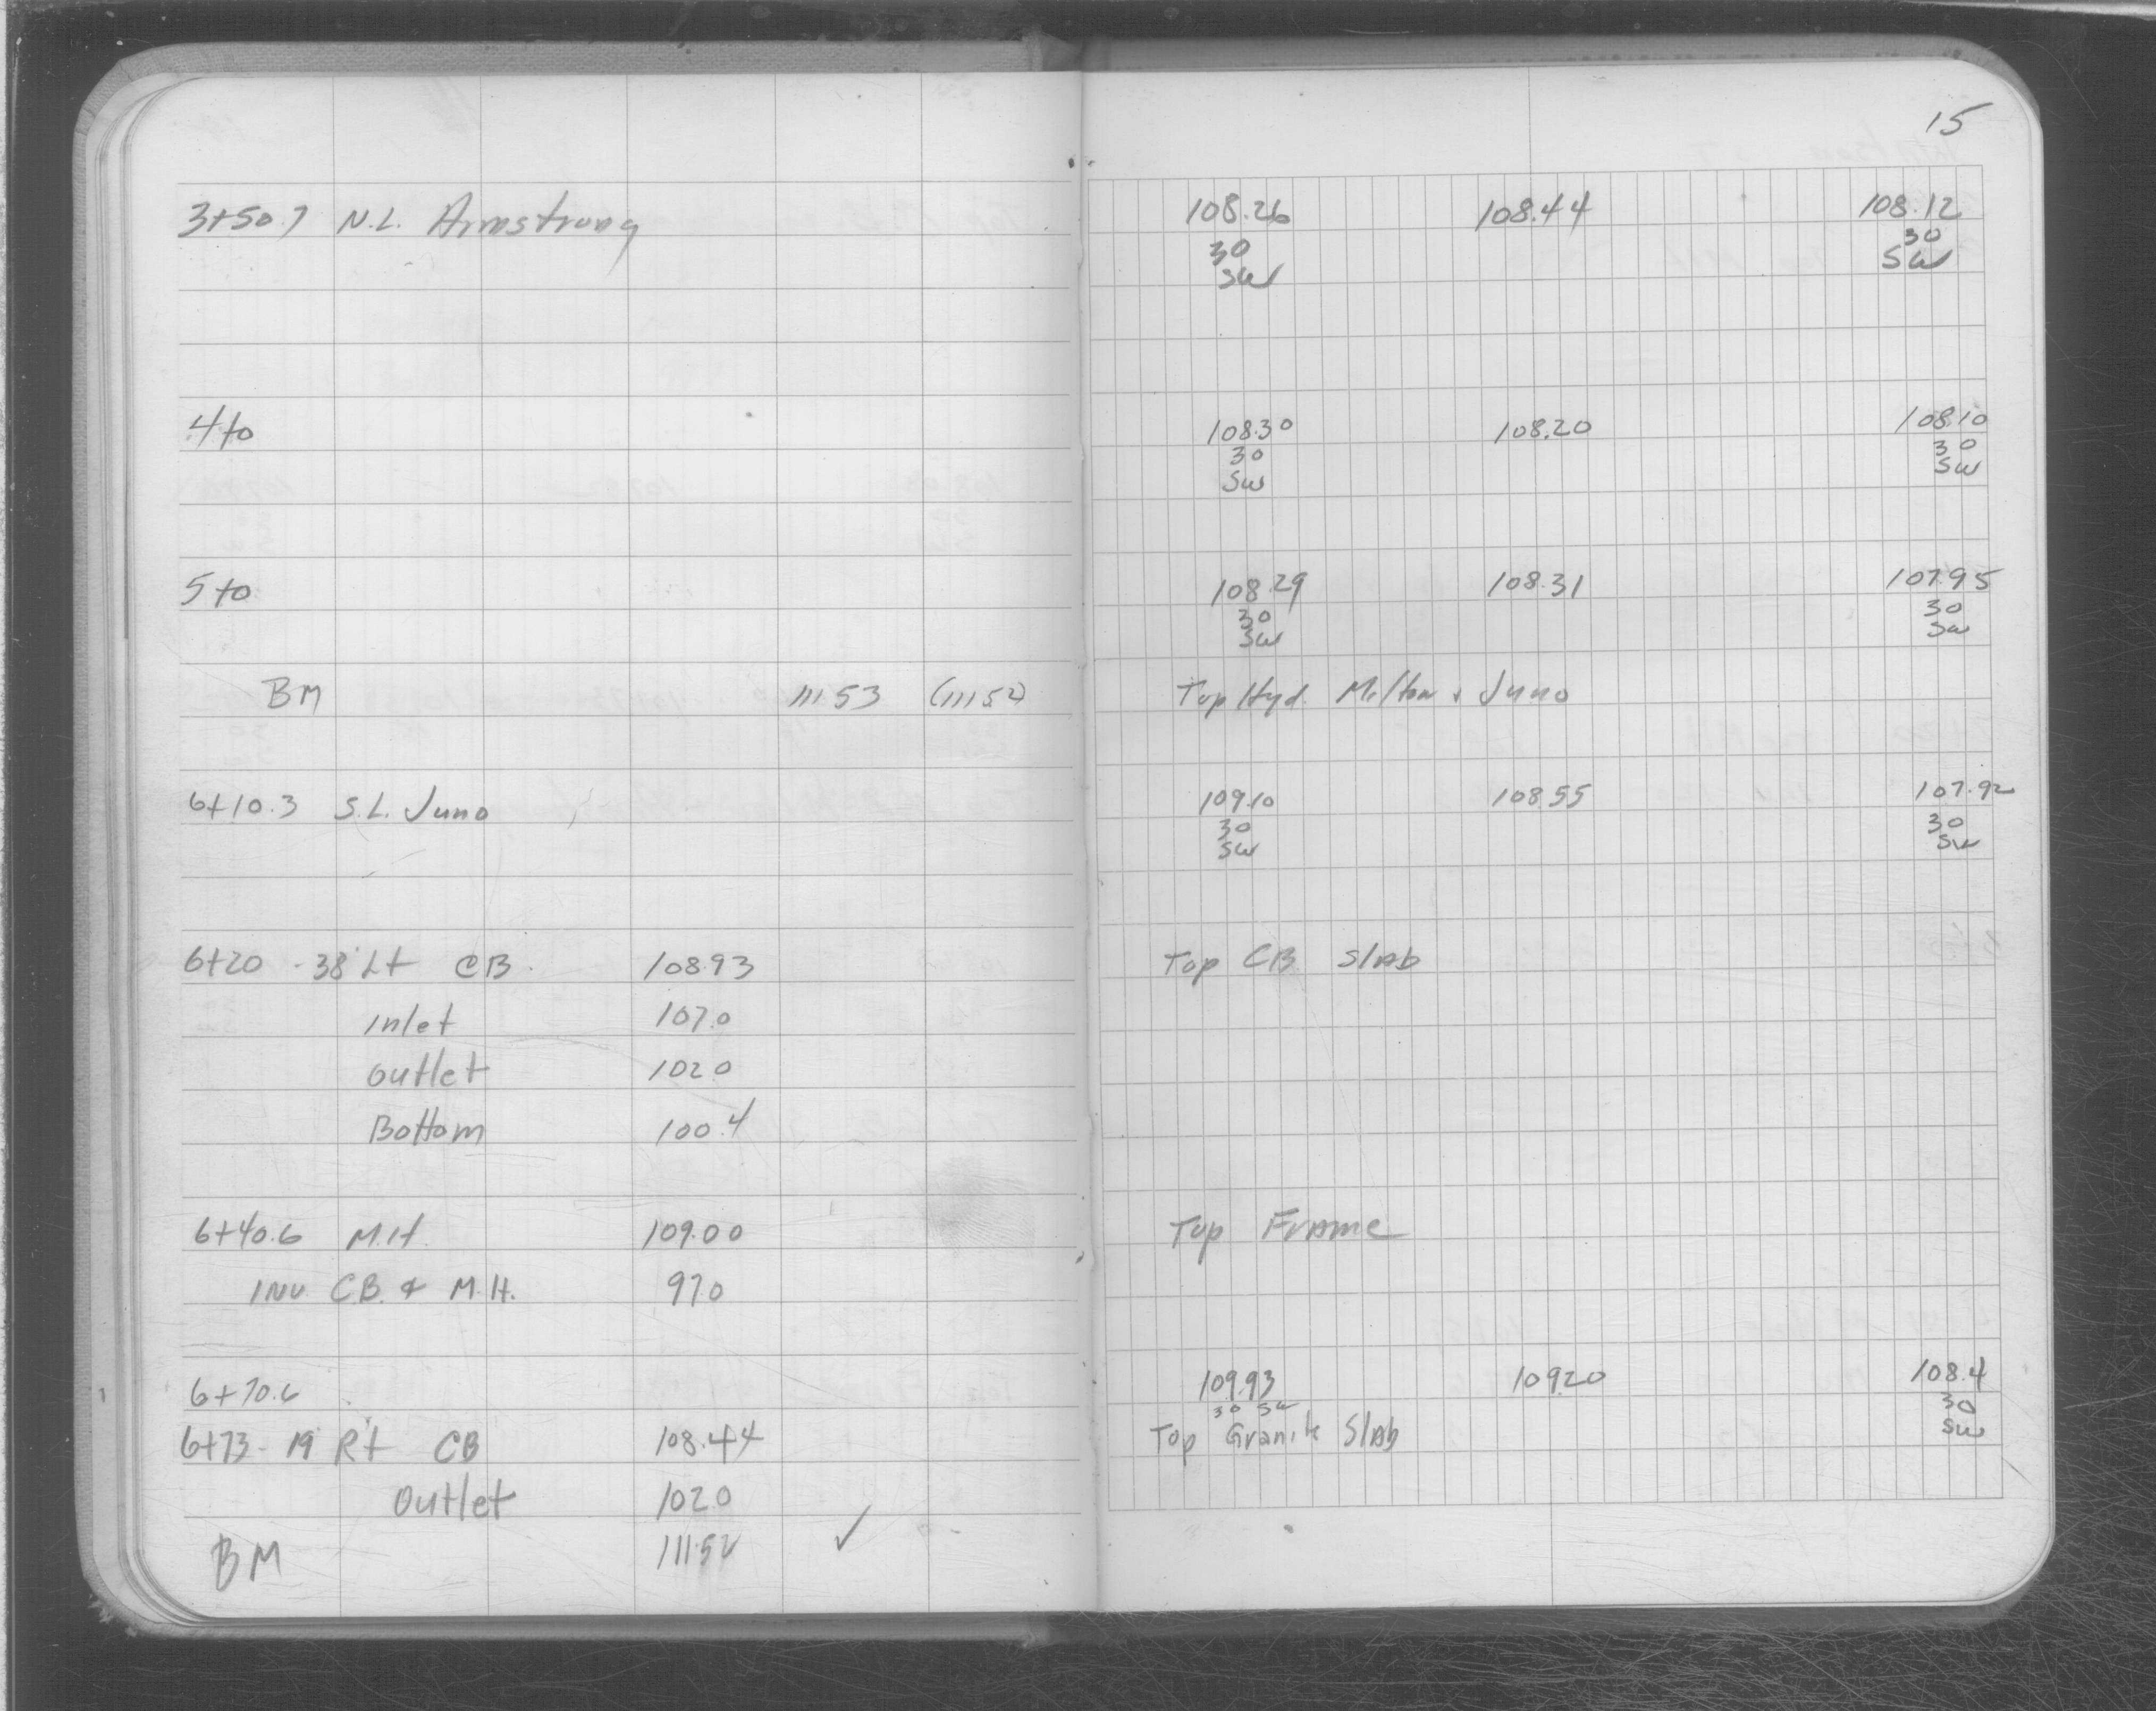 15
3+50.7 N.L. Armstrong 108.26 108.44 108.12
30 30
SW SW
4+0 108.30 108.20 108.10
30 30
SW SW
5+0 108.29 108.31 107.95
30 30
SW SW
BM 111.53 (111.52) Top Hyd. Milton & Juno
6+10.3 S.L. Juno 109.10 108.55 107.92
30 30
SW SW
6+20 - 38' Lt CB. 108.93 Top CB Slab
Inlet 107.0
Outlet 102.0
Bottom 100.4
6+40.6 M.H. 109.00 Top Frame
INV. CB. & M.H. 97.0
6+70.6 109.93 109.20 108.4
30 SW 30
6+73 - 19' Rt CB 108.44 Top Granite Slab SW
Outlet 102.0
BM 111.52 ✓